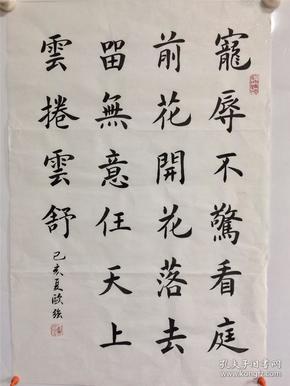 寵辱不驚看庭
前花開花落去
留無意任天上
雲捲雲舒
己亥夏歐強
孔夫子旧书网